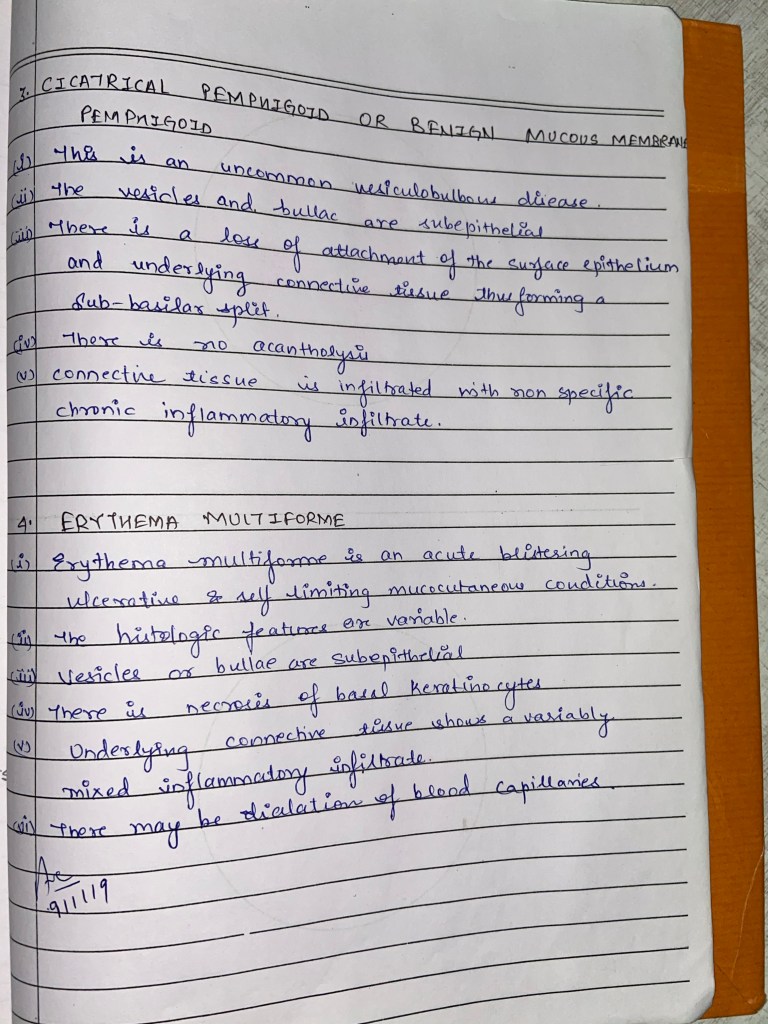 3. CICATRICAL PEMPHIGOID OR BENIGN MUCOUS MEMBRANE
PEMPHIGOID
(i) This is an uncommon vesiculobulbous disease.
(ii) The vesicles and bullae are subepithelial
(iii) There is a loss of attachment of the surface epithelium
and underlying connective tissue thus forming a
Sub-basilar split.
(iv) There is no acantholysis
(v) connective tissue is infiltrated with non specific
chronic inflammatory infiltrate.
4. ERYTHEMA MULTIFORME
(i) Erythema multiforme is an acute blistering
ulcerative & self limiting mucocutaneous conditions.
(ii) The histologic features are variable.
(iii) Vesicles or bullae are subepithelial
(iv) There is necrosis of basal keratinocytes
(v) Underlying connective tissue shows a variably
mixed inflammatory infiltrate.
(vi) There may be dialation of blood capillaries.
9/11/19